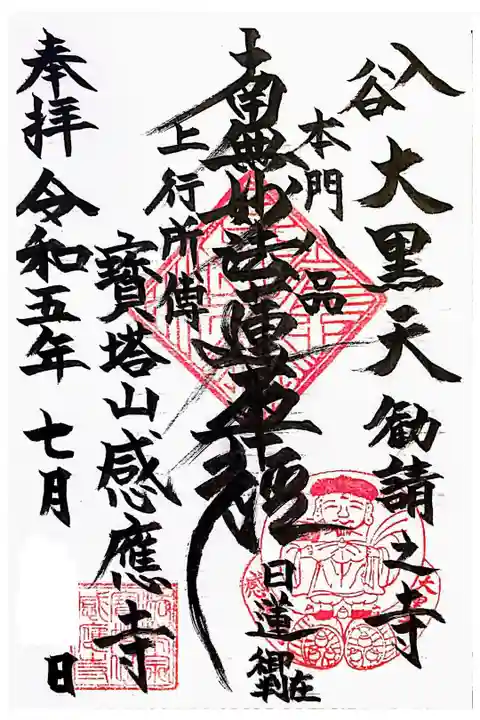 入谷 大黒天 勧請之寺
本門八品
南無妙法蓮華経
日蓮 在御判
上行所傳
寳塔山感應寺
奉拝 令和五年 七月 日